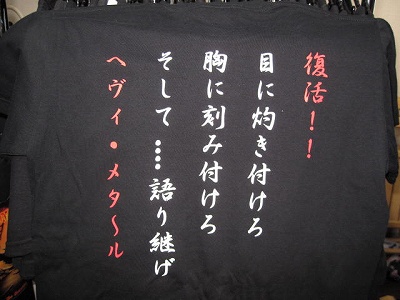 復活！！
目に灼き付けろ
胸に刻み付けろ
そして‥‥語り継げ
ヘヴィ・メタ〜ル